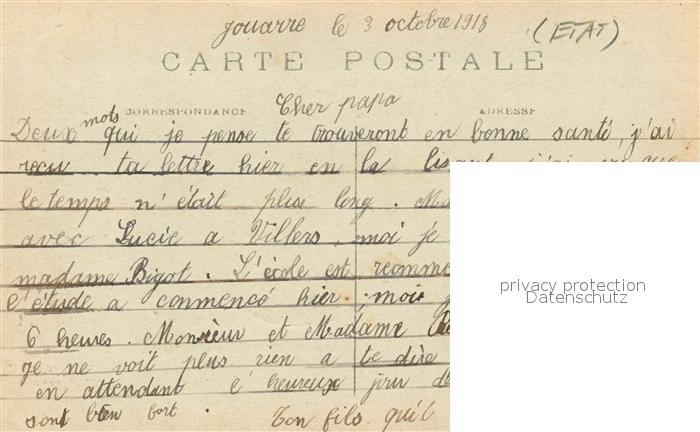 Jouarre le 3 octobre 1918 (ETAT)
CARTE POSTALE
CORRESPONDANCE Cher papa ADRESSE
Deux mots qui je pense te trouveront en bonne santé, j'ai
recu ta lettre hier en la
le temps n'était plus long.
avec Lucie a Villers, moi je
madame Bigot. L'école est recomme
l'étude a conmencé hier, mois
6 heures. Monsieur et Madame
Je ne voit plus rien a te dire
en attendant l'heureux de
sont bien fort. Ton fils qui
privacy protection
Datenschutz